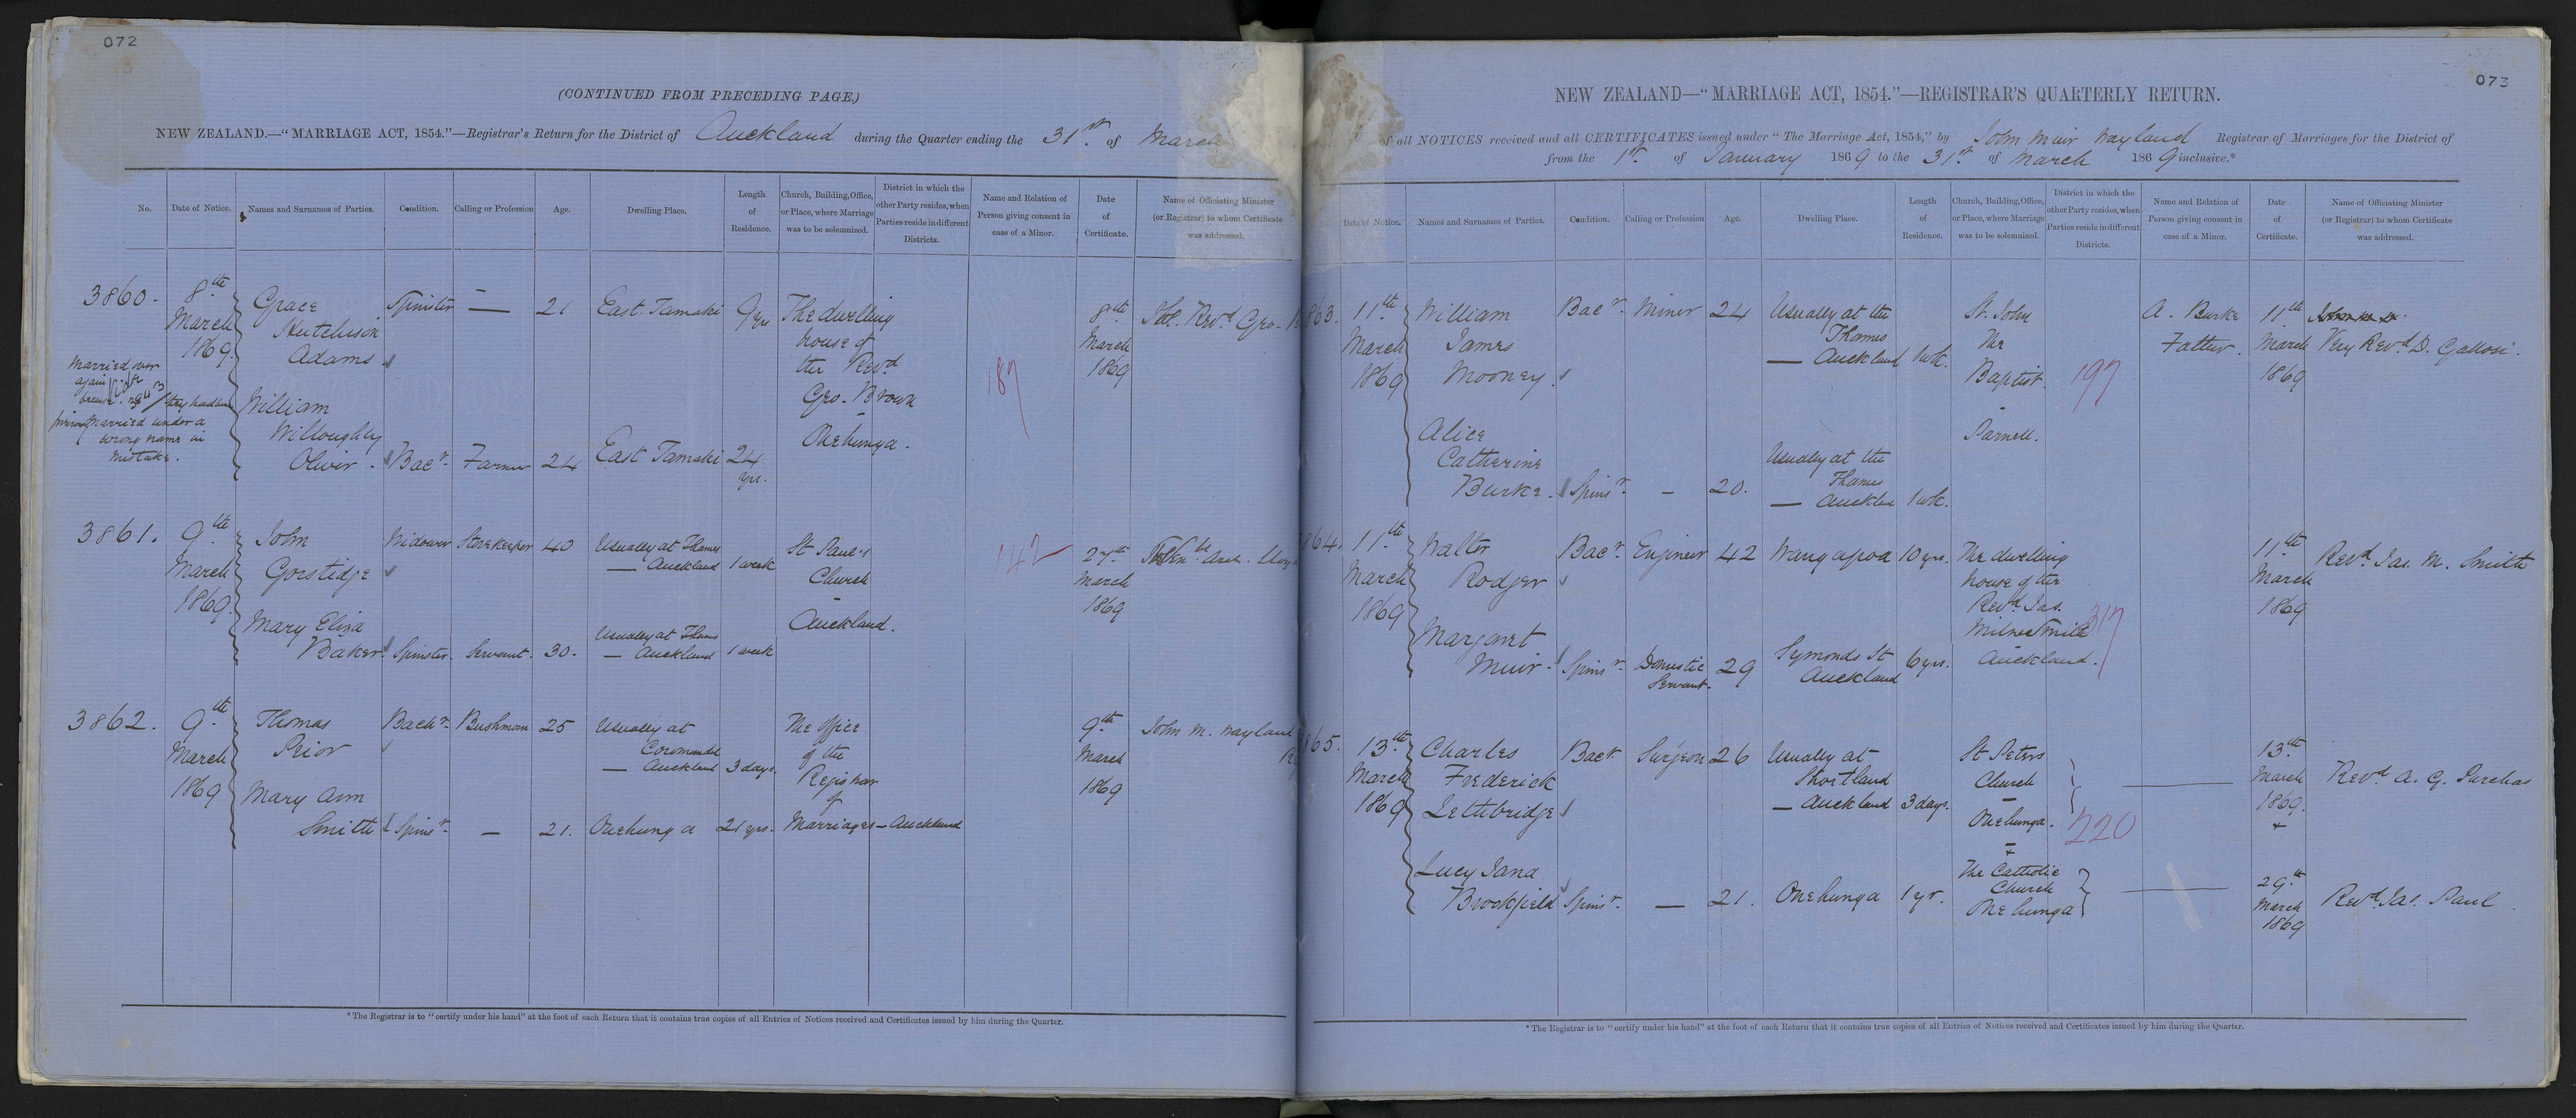 072
(CONTINUED FROM PRECEDING PAGE.)
NEW ZEALAND.—"MARRIAGE ACT, 1854."—Registrar's Return for the District of Auckland during the Quarter ending the 31st of March
No. Date of Notice. Names and Surnames of Parties. Condition. Calling or Profession Age. Dwelling Place. Length of Residence. Church, Building, Office, or Place, where Marriage was to be solemnized. District in which the other Party resides, when Parties reside in different Districts. Name and Relation of Person giving consent in case of a Minor. Date of Certificate. Name of Officiating Minister (or Registrar) to whom Certificate was addressed.
3860. 8th March 1869.
Grace Hutchison Adams Spinster — 21 East Tamaki 9 yrs
William Willoughby Oliver. Bacr. Farmer 24 East Tamaki 24 yrs.
The dwelling house of the Revd Geo. Brown Onehunga.
187
8th March 1869
Revd Geo.
Married over again
they had been
married under a
wrong name in
mistake.
3861. 9th March 1869.
John Gorstidge Widower Storekeeper 40 Usually at Thames — Auckland 1 week
Mary Eliza Baker Spinster. Servant. 30. Usually at Thames — Auckland 1 week
St Paul's Church — Auckland.
142
27th March 1869
3862. 9th March 1869
Thomas Prior Bachr. Bushman 25 Usually at Coromandel — Auckland 3 days.
Mary Ann Smith Spinsr. — 21. Onehunga 21 yrs.
The office of the Registrar of Marriages — Auckland
9th March 1869
John M. Wayland
*The Registrar is to "certify under his hand" at the foot of each Return that it contains true copies of all Entries of Notices received and Certificates issued by him during the Quarter.
073
NEW ZEALAND—"MARRIAGE ACT, 1854."—REGISTRAR'S QUARTERLY RETURN.
of all NOTICES received and all CERTIFICATES issued under "The Marriage Act, 1854," by John Muir Wayland Registrar of Marriages for the District of
from the 1st of January 1869 to the 31st of March 1869 inclusive.*
Date of Notice. Names and Surnames of Parties. Condition. Calling or Profession Age. Dwelling Place. Length of Residence. Church, Building, Office, or Place, where Marriage was to be solemnized. District in which the other Party resides, when Parties reside in different Districts. Name and Relation of Person giving consent in case of a Minor. Date of Certificate. Name of Officiating Minister (or Registrar) to whom Certificate was addressed.
863. 11th March 1869
William James Mooney. Bacr. Miner 24 Usually at the Thames — Auckland 1 wk.
Alice Catherine Burke. Spinsr. — 20. Usually at the Thames — Aucklan 1 wk.
St. John The Baptist. — Parnell.
197
A. Burke Father.
11th March 1869
Very Revd D. Galloni.
864. 11th March 1869
Walter Rodger Bacr. Engineer 42 Wangapoa 10 yrs.
Margaret Muir. Spinsr. Domestic Servant. 29 Symonds St Auckland 6 yrs.
The dwelling house of the Revd Jas. Milne Smith Auckland.
317
11th March 1869
Revd. Jas. M. Smith
865. 13th March 1869
Charles Frederick Lethbridge Bacr. Surgeon 26 Usually at Shortland — Auckland 3 days.
Lucy Jana Brookfield Spinsr. — 21. Onehunga 1 yr.
St Peters Church — Onehunga.
+
The Catholic Church Onehunga
220
13th March 1869. +
Revd A. G. Purchas
29th March 1869
Revd. Jas. Paul
*The Registrar is to "certify under his hand" at the foot of each Return that it contains true copies of all Entries of Notices received and Certificates issued by him during the Quarter.